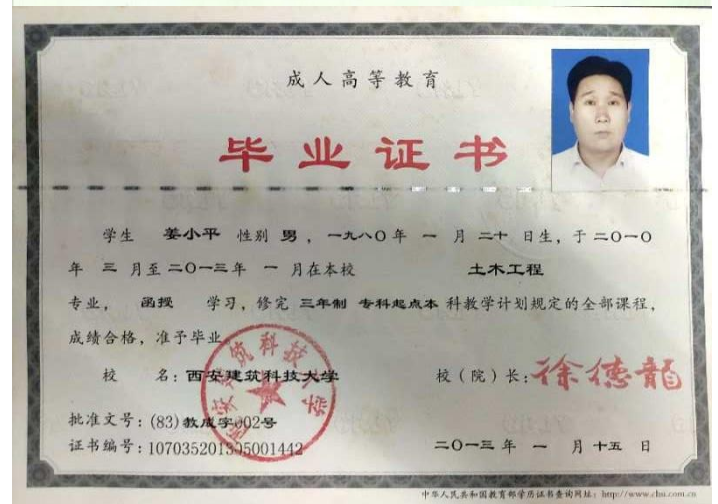 成人高等教育
毕业证书
学生 姜小平 性别 男，一九八〇年 一 月 二十 日生，于二〇一〇
年 三 月至二〇一三年 一 月在本校 土木工程
专业， 函授 学习，修完 三年制 专科起点本 科教学计划规定的全部课程，
成绩合格，准予毕业
校 名：西安建筑科技大学 校（院）长：徐德龍
批准文号：(83)教成字002号
证书编号：107035201305001442 二〇一三年 一 月 十五 日
中华人民共和国教育部学历证书查询网址：http://www.chsi.com.cn